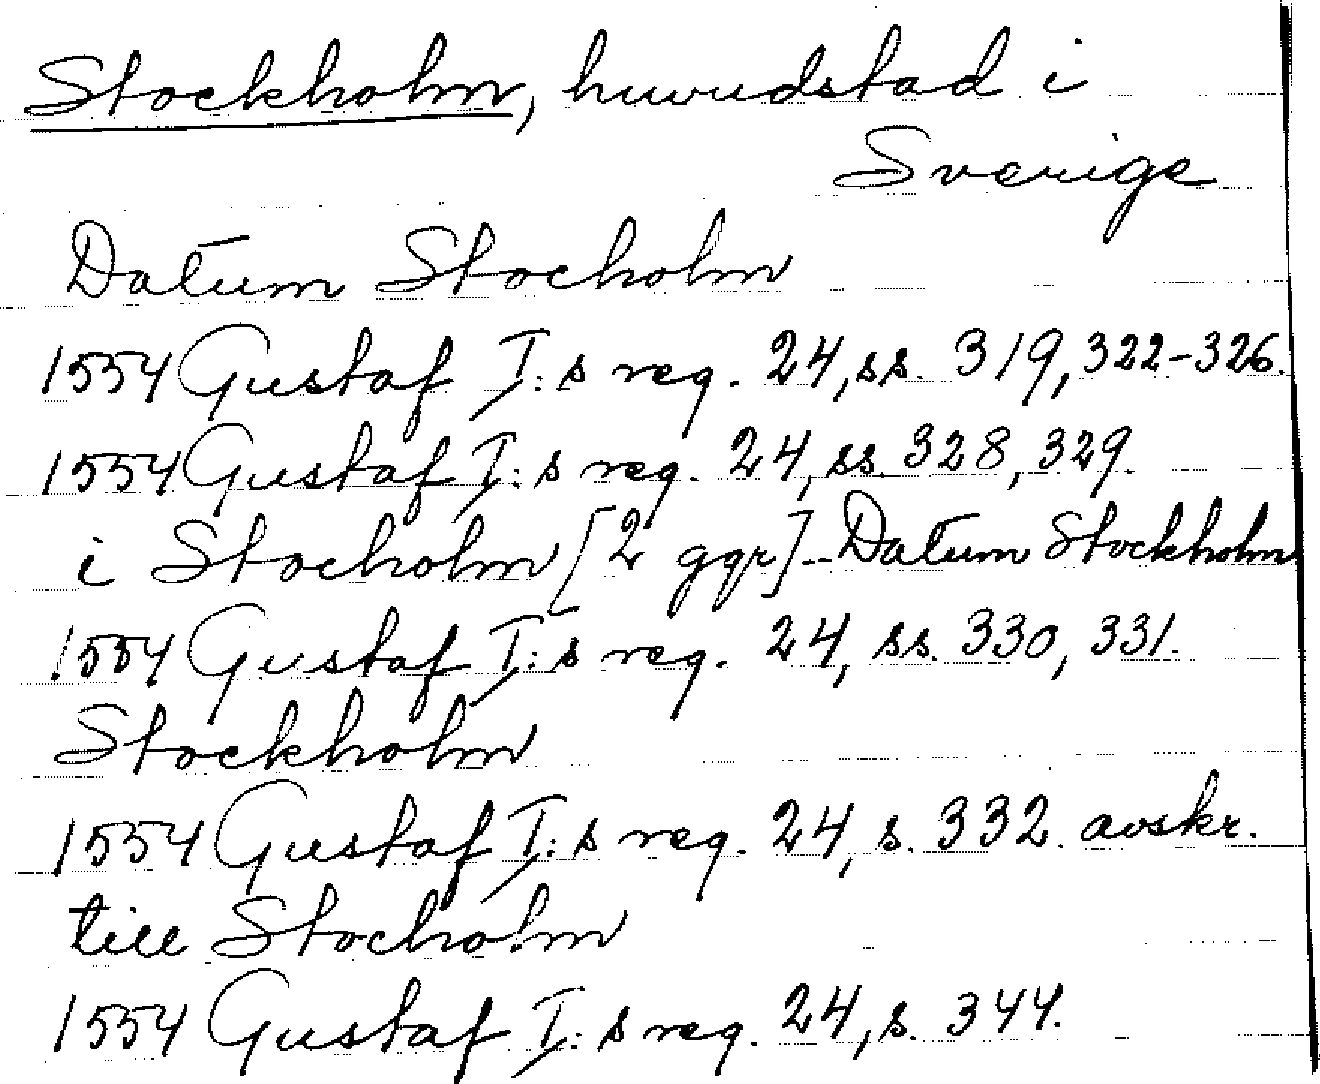 Stockholm, huvudstad i
Sverige
Datum Stocholm
1554 Gustaf I:s reg. 24, ss. 319, 322-326.
1554 Gustaf I:s reg. 24, ss. 328, 329.
i Stocholm [2 ggr] - Datum Stockholm
1554 Gustaf I:s reg. 24, ss. 330, 331.
Stockholm
1554 Gustaf I:s reg. 24, s. 332. avskr.
till Stocholm
1554 Gustaf I:s reg. 24, s. 344.